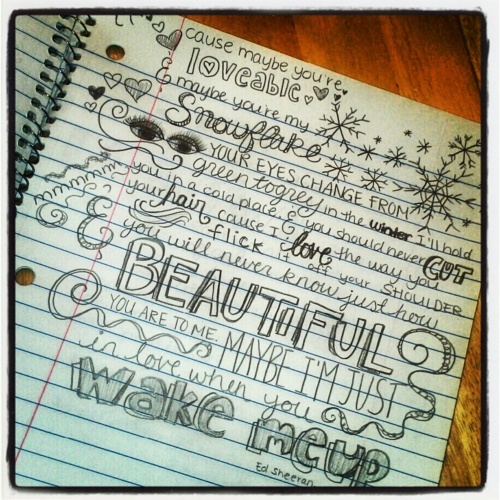 cause maybe you're
loveable
maybe you're my
Snowflake
YOUR EYES CHANGE FROM
green to grey in the winter I'll hold
you in a cold place. & you should never CUT
your hair cause I love the way you
flick it off your SHOULDER
you will never know just how
BEAUTIFUL
YOU ARE TO ME. MAYBE I'M JUST
in love when you
wake me up
Ed Sheeran